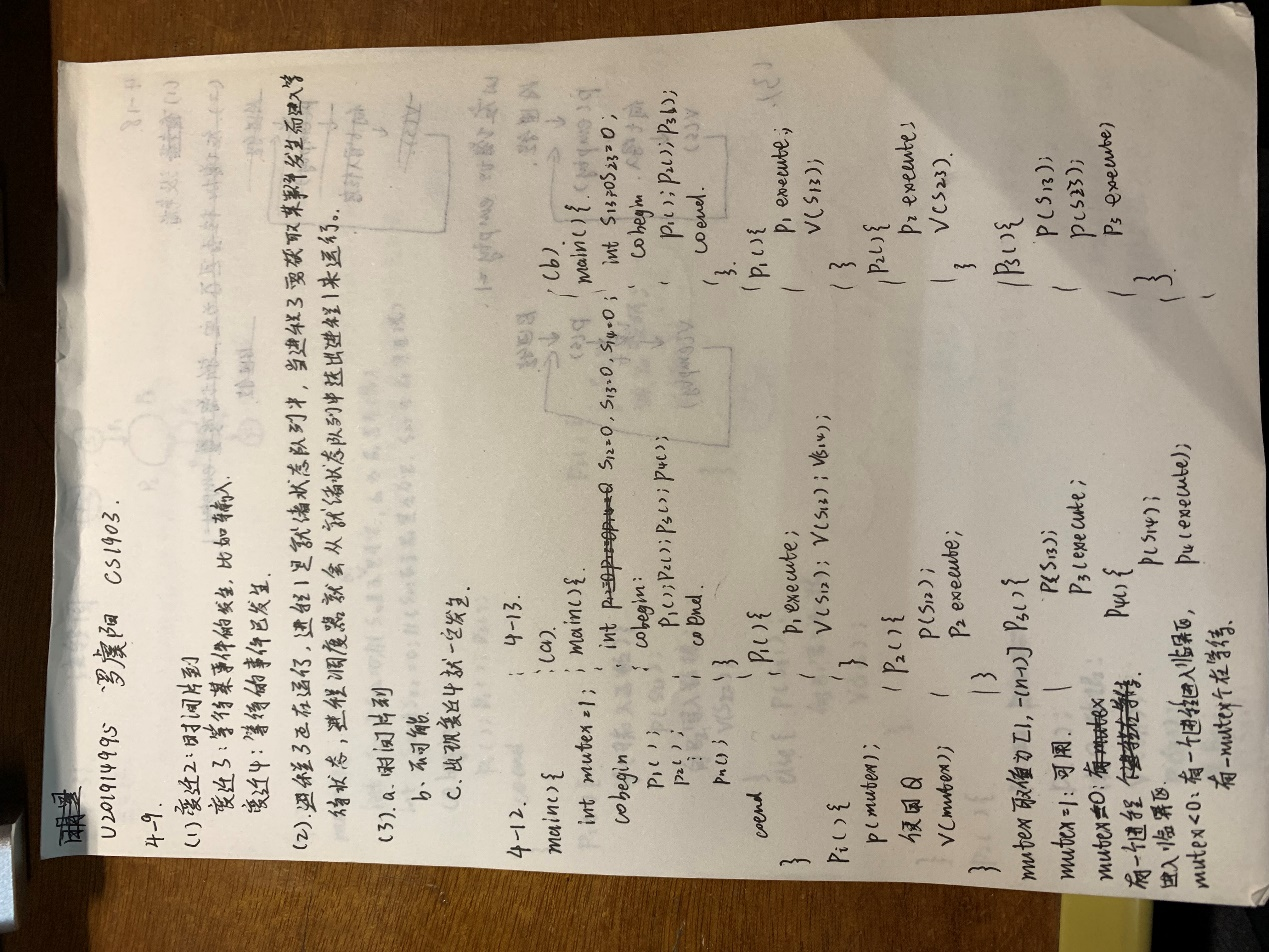 U201914995 罗虞阳 CS1903.
4-9.
(1) 变迁2: 时间片到
变迁3: 等待某事件的发生, 比如输入.
变迁4: 等待的事件已发生.
(2). 进程3正在运行, 进程1是就绪状态队列中, 当进程3要获取某事件发生而进入等
待状态, 进程调度器就会从就绪状态队列中选出进程1来运行。
(3). a. 时间片到
b. 不可能.
c. 出现变迁4就一定发生.
4-12.
main() {
int mutex=1;
cobegin
P1();
P2();
⋮
Pn();
coend
}
Pi() {
P(mutex);
使用Q
V(mutex);
}
mutex取值为[1, -(n-1)]
mutex=1: 可用.
mutex=0:
有一个进程
进入临界区.
mutex<0: 有一个进程进入临界区,
有-mutex个在等待.
4-13.
(a).
main() {
int S12=0, S13=0, S14=0;
cobegin:
P1(); P2(); P3(); P4();
coend.
}
P1() {
P1 execute;
V(S12); V(S13); V(S14);
}
P2() {
P(S12);
P2 execute;
}
P3() {
P(S13);
P3(execute;
P4() {
P(S14);
P4(execute);
(b).
main() {
int S13=0 S23=0;
cobegin
P1(); P2(); P3();
coend.
}.
P1() {
P1 execute;
V(S13);
}
P2() {
P2 execute;
V(S23).
}
P3() {
P(S13);
P(S23);
P3 execute;
}.